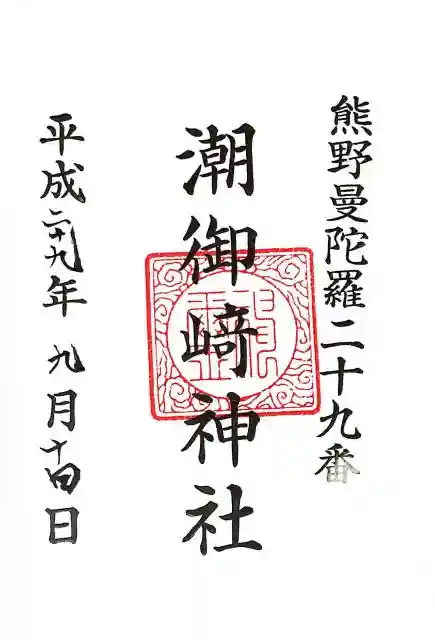 熊野曼陀羅二十九番
潮御﨑神社
平成二十九年 九月十四日